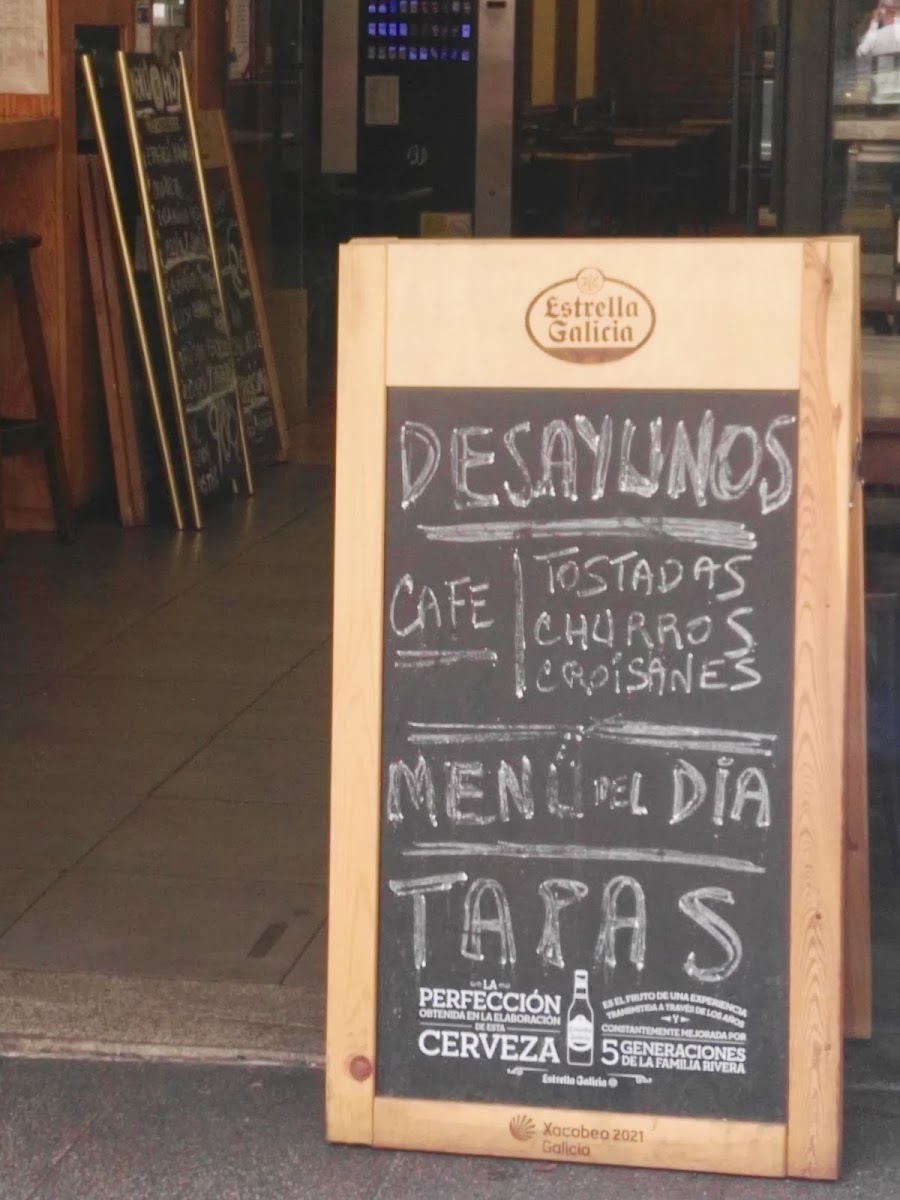 Estrella
Galicia
DESAYUNOS
CAFE
TOSTADAS
CHURROS
CROÍSANES
MENÚ DEL DÍA
TAPAS
LA
PERFECCIÓN
OBTENIDA EN LA ELABORACIÓN
DE ESTA
CERVEZA
ES EL FRUTO DE UNA EXPERIENCIA
TRANSMITIDA A TRAVÉS DE LOS AÑOS
Y
CONSTANTEMENTE MEJORADA POR
5 GENERACIONES
DE LA FAMILIA RIVERA
Estrella Galicia
Xacobeo 2021
Galicia